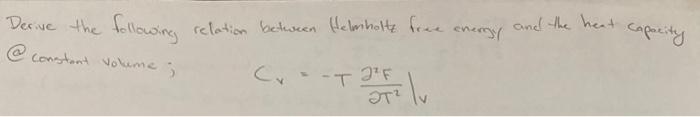 Derive the following relation between Helmholtz free energy and the heat capacity
@ constant volume;
Cᵥ = -T ∂²F/∂T² |ᵥ